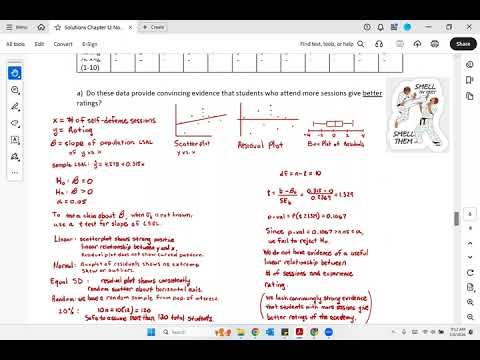 Solutions Chapter 12 No...
All tools
Edit
Convert
E-Sign
Find text, tools, or help.
(1-10)
a) Do these data provide convincing evidence that students who attend more sessions give better
ratings?
x = # of self-defense sessions
y = Rating
β = slope of population LSRL
of y vs. x
Sample LSRL:
Scatterplot
y vs. x
Residual Plot
-4 -2 0 2 4
Box Plot of Residuals
H₀: β = 0
Hₐ: β > 0
α = 0.05
To test a claim about β, when σ is not known,
use a t test for slope of LSRL.
Linear: scatterplot shows strong positive
linear relationship between y and x.
Residual plot does not show curved pattern.
Normal: Boxplot of residuals shows no extreme
skew or outliers.
Equal SD: residual plot shows consistently
random scatter about horizontal axis.
Random: we have a random sample from pop. of interest.
10%: 10n = 10(12) = 120
Safe to assume more than 120 total students.
df = n - 2 = 10
t = b - β₀ / SE_b = 0.315 - 0 / 0.2369 = 1.329
p-val = P(t ≥ 1.329) = 0.1067
Since p-val = 0.1067 > 0.05 = α,
we fail to reject H₀.
We do not have evidence of a useful
linear relationship between
# of sessions and experience
rating.
(We lack convincingly strong evidence
that students with more sessions give
better ratings of the academy.)
SMELL
MY FEET
SMELL
IT
THEM